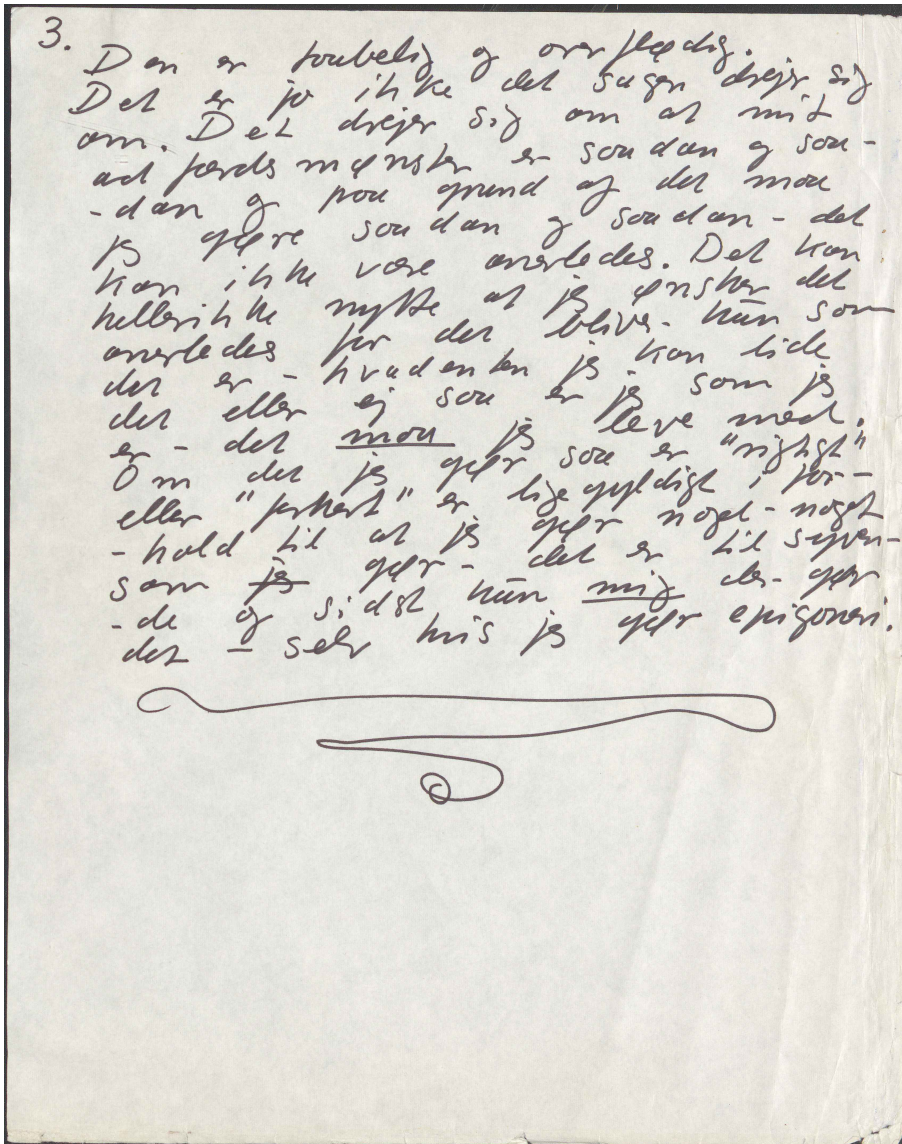 3.
Den er taabelig og overflødig.
Det er jo ikke det sagen drejer sig
om. Det drejer sig om at mit
adfærdsmønster er saadan og saa-
-dan og paa grund af det maa
jeg gøre saadan og saadan - det
kan ikke være anerledes. Det kan
hellerikke nytte at jeg ønsker det
anerledes for det bliver kun som
det er - hvadenten jeg kan lide
det eller ej saa er jeg som jeg
er - det maa jeg leve med.
Om det jeg gør saa er "rigtigt"
eller "forkert" er ligegyldigt i for-
-hold til at jeg gør noget - noget
som jeg gør - det er til syven-
-de og sidst kun mig der gør
det - selv hvis jeg gør epigoneri.